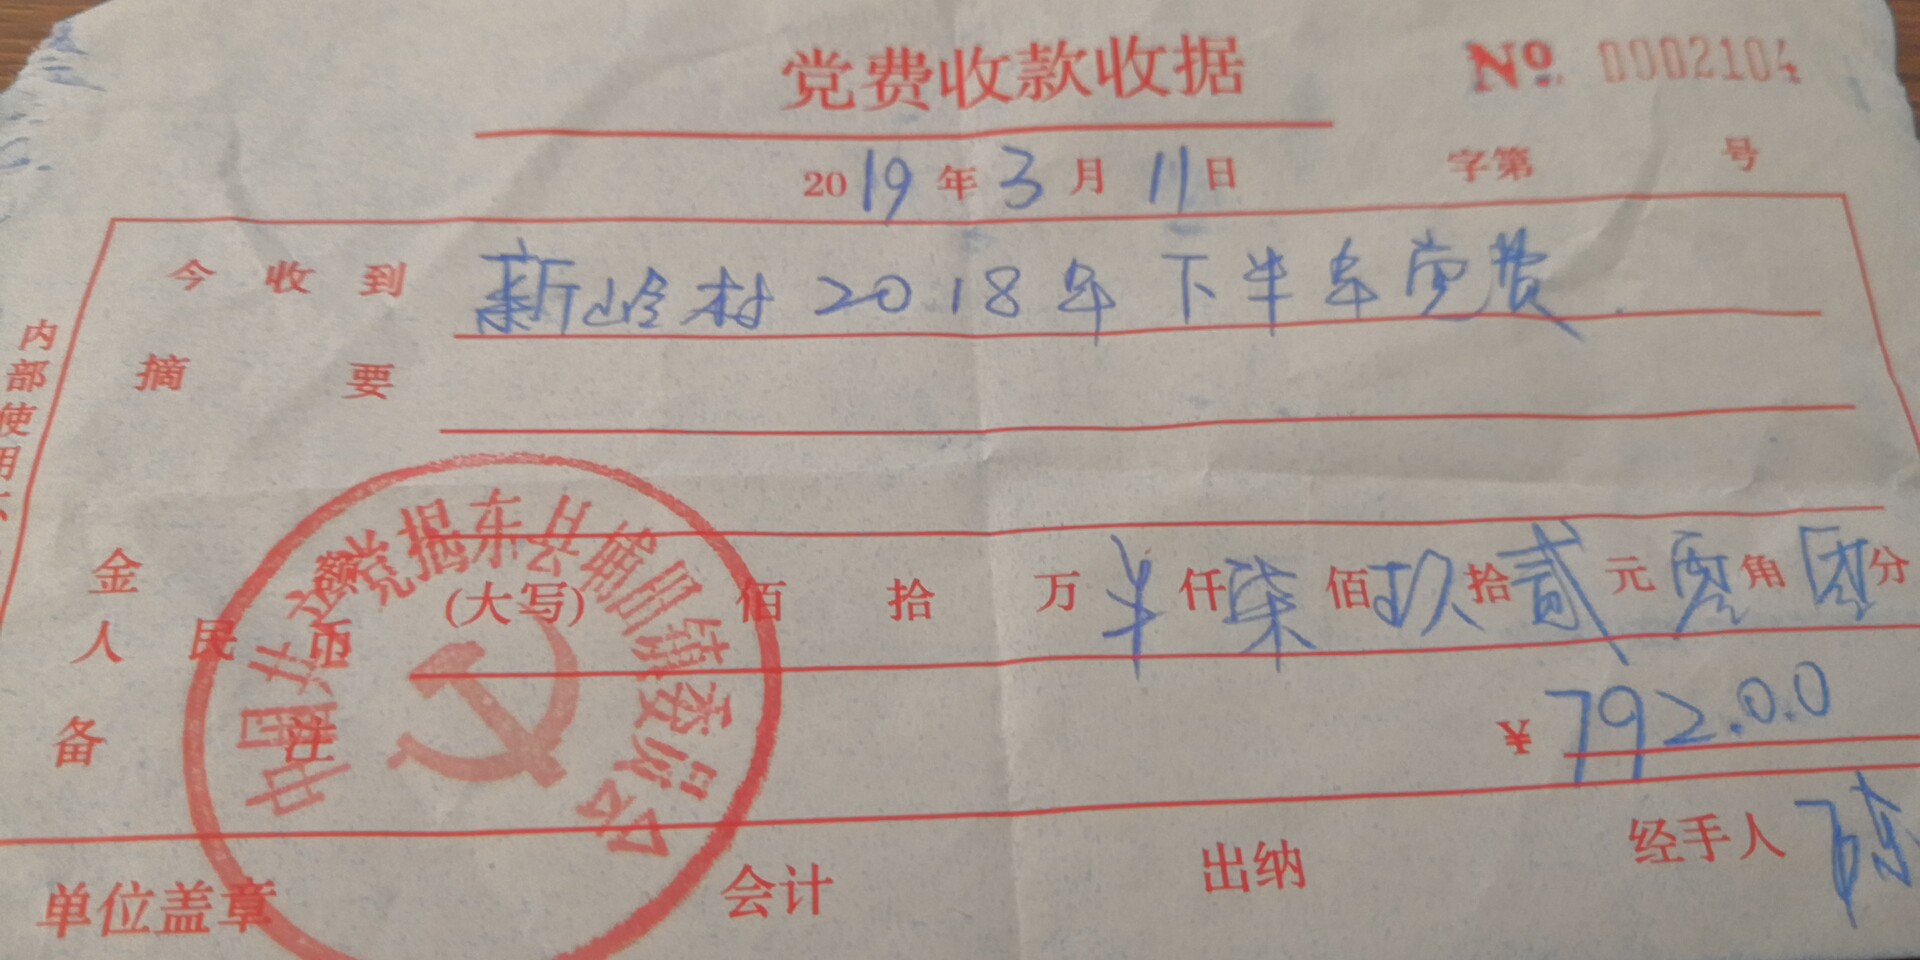 党费收款收据
No 0002104
2019年3月11日
字第 号
今收到 新岭村2018年下半年党费.
摘要
内部使用
金
人民币
(大写) 佰 拾 万 半仟柒佰玖拾贰元零角零分
备注
¥792.00
中国共产党揭东县埔田镇委员会
单位盖章
会计
出纳
经手人 陈